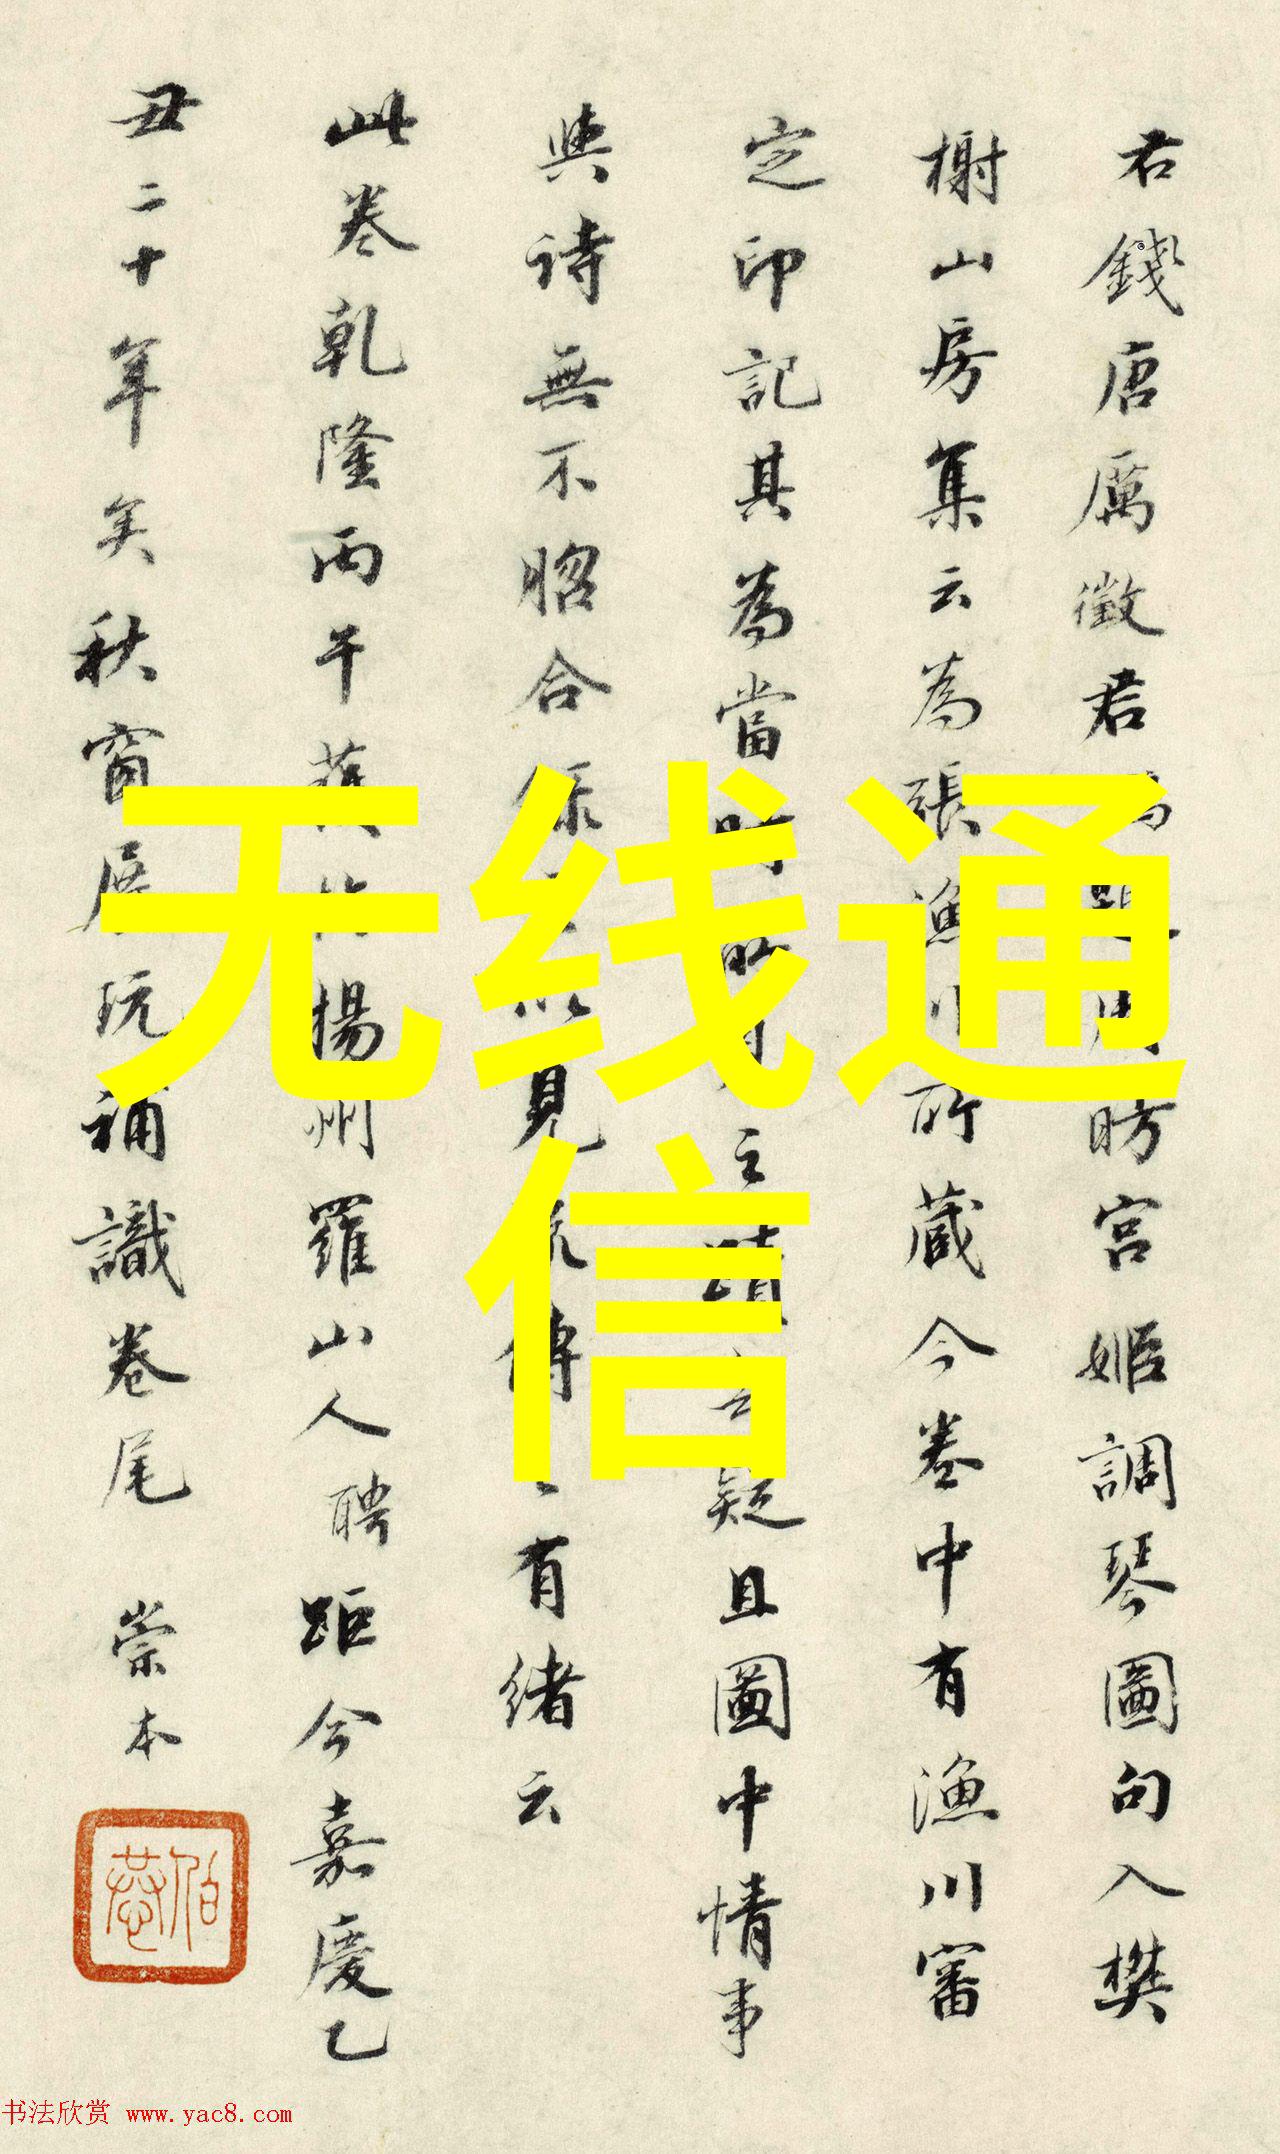 君錢唐厲徵君昉宮姬調琴圖句入樊
榭山房集云為張漁川所藏今卷中有漁川審
定印記其為當時疑且圖中情事
與詩無不昭合見有緒云
此卷乾隆丙午揚州羅山人聘距今嘉慶乙
丑二十年矣秋窗展玩補識卷尾 崇本
无线通
信
书法欣赏 www.yac8.com